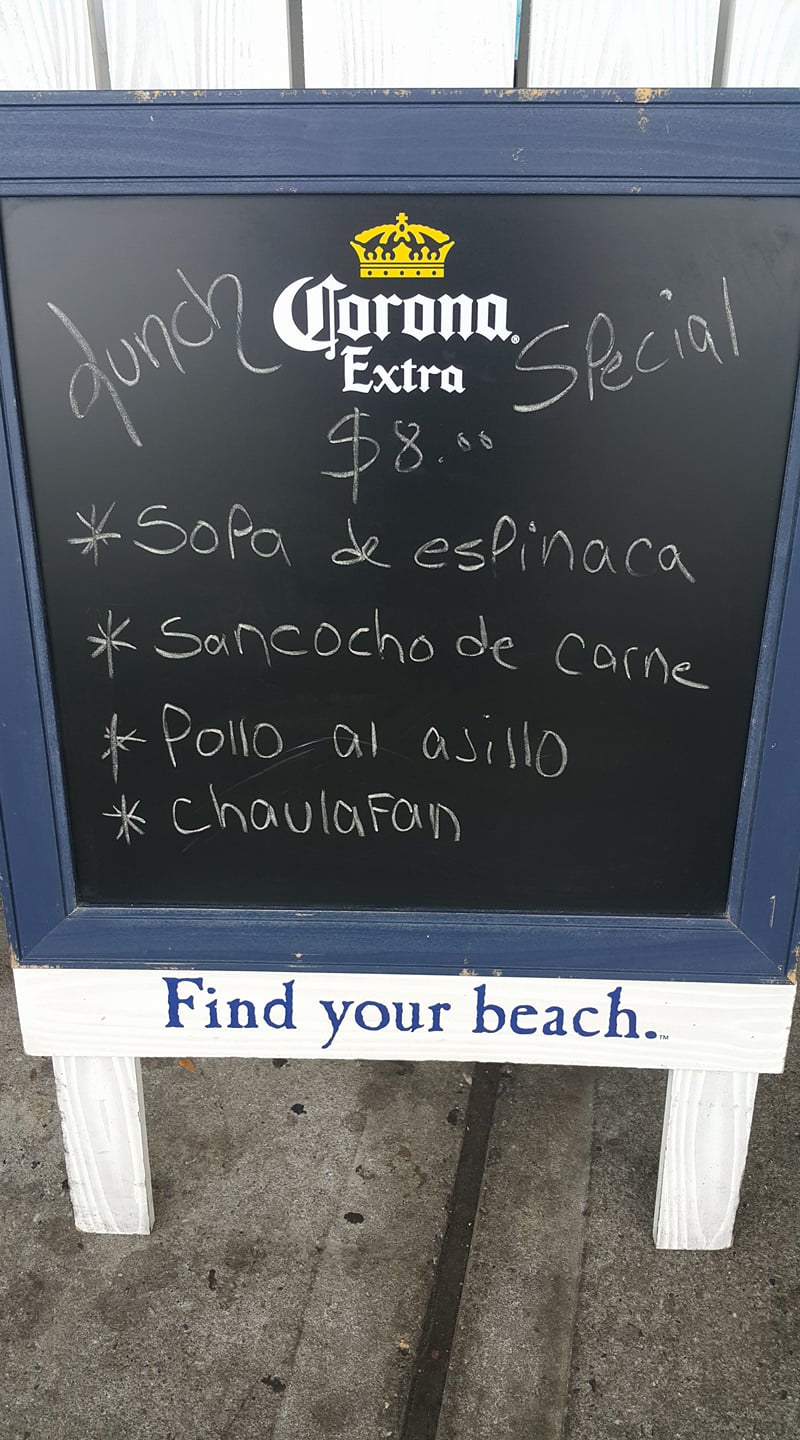 Lunch Corona Special
Extra
$8.00
* Sopa de espinaca
* Sancocho de carne
* Pollo al ajillo
* chaulaFan
Find your beach.™